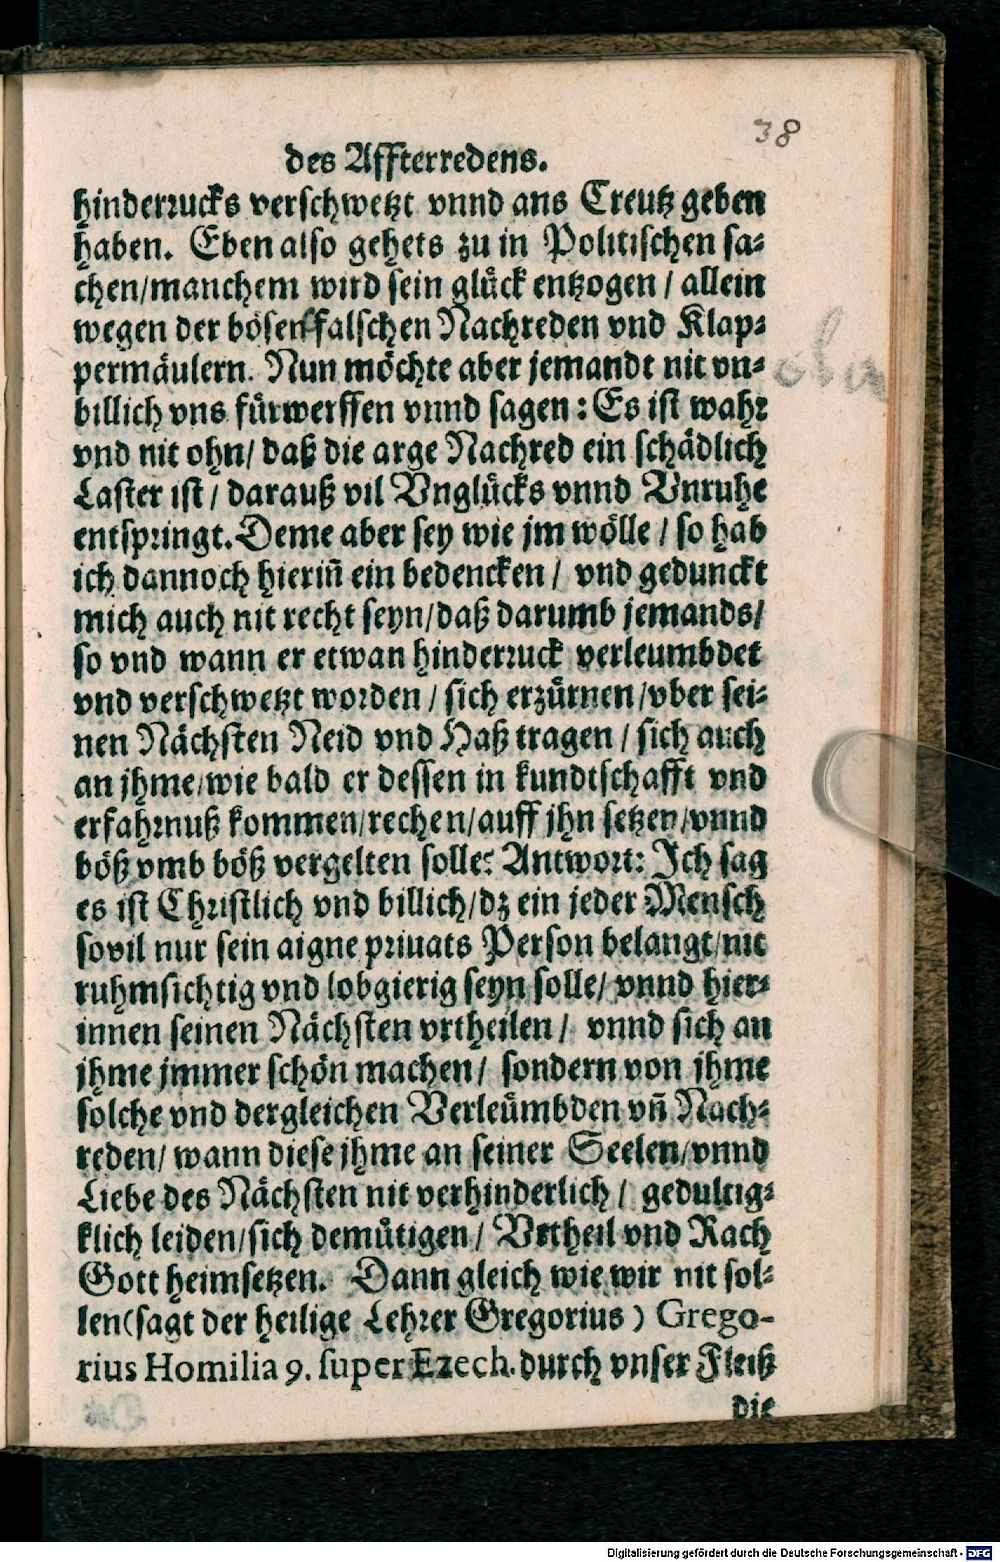 38
des Affterredens.
hinderrucks verschwetzt vnnd ans Creutz geben
haben. Eben also gehets zu in Politischen sa-
chen/manchem wird sein glück entzogen / allein
wegen der bösen falschen Nachreden vnd Klap-
permäulern. Nun möchte aber jemandt nit vn-
billich vns fürwerffen vnnd sagen: Es ist wahr
vnd nit ohn/ daß die arge Nachred ein schädlich
Laster ist / darauß vil Vnglücks vnnd Vnruhe
entspringt. Deme aber sey wie jm wölle / so hab
ich dannoch hieriñ ein bedencken / vnd gedunckt
mich auch nit recht seyn/daß darumb jemands/
so vnd wann er etwan hinderruck verleumbdet
vnd verschwetzt worden / sich erzürnen/vber sei-
nen Nächsten Neid vnd Haß tragen / sich auch
an jhme/wie bald er dessen in kundtschafft vnd
erfahrnuß kommen/rechen/auff jhn setzen/vnnd
böß vmb böß vergelten solle? Antwort: Ich sag
es ist Christlich vnd billich/dz ein jeder Mensch
sovil nur sein aigne priuats Person belangt/nit
ruhmsichtig vnd lobgierig seyn solle/ vnnd hier-
innen seinen Nächsten vrtheilen / vnnd sich an
jhme jmmer schön machen / sondern von jhme
solche vnd dergleichen Verleümbden vñ Nach-
reden/ wann diese jhme an seiner Seelen/vnnd
Liebe des Nächsten nit verhinderlich / gedultig-
klich leiden/sich demütigen / Vrtheil vnd Rach
Gott heimsetzen. Dann gleich wie wir nit sol-
len(sagt der heilige Lehrer Gregorius) Grego-
rius Homilia 9. super Ezech. durch vnser Fleiß
die
Digitalisierung gefördert durch die Deutsche Forschungsgemeinschaft - DFG